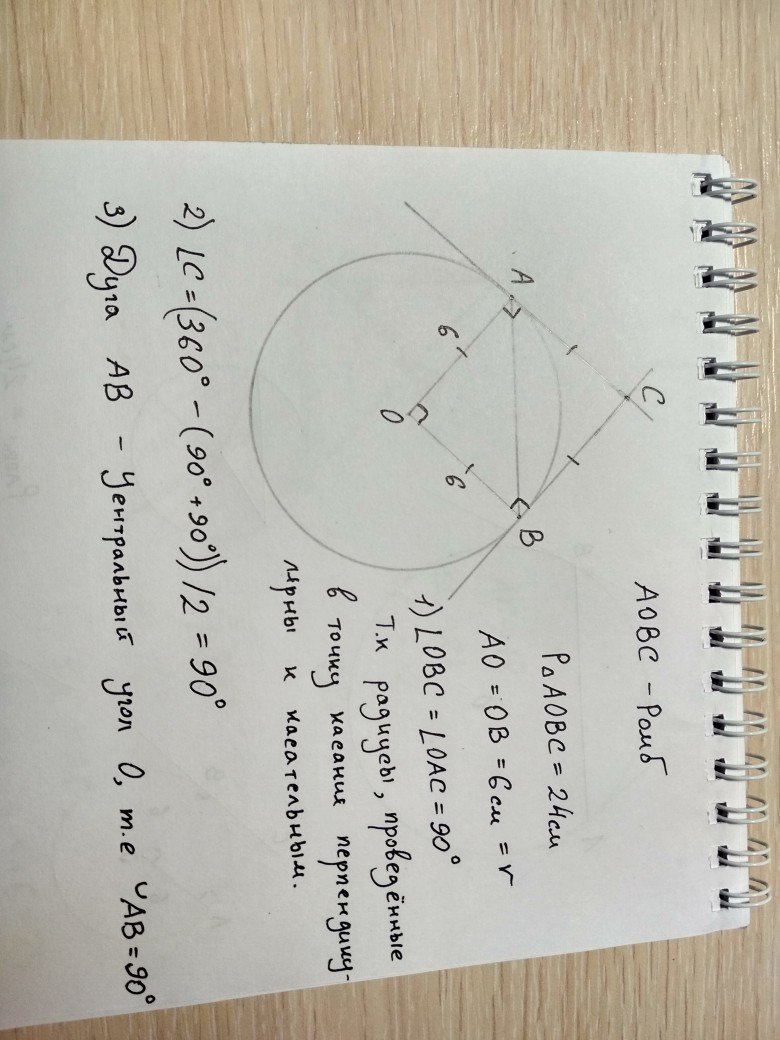 AOBC - Ромб
P△AOBC = 24см
AO = OB = 6см = r
1) ∠OBC = ∠OAC = 90°
Т.к радиусы, проведённые
в точку касания перпендику-
лярны к касательным.
A
C
B
O
6
6
2) ∠C = (360° - (90° + 90°)) / 2 = 90°
3) Дуга AB - Центральный угол O, т.е ◡AB = 90°